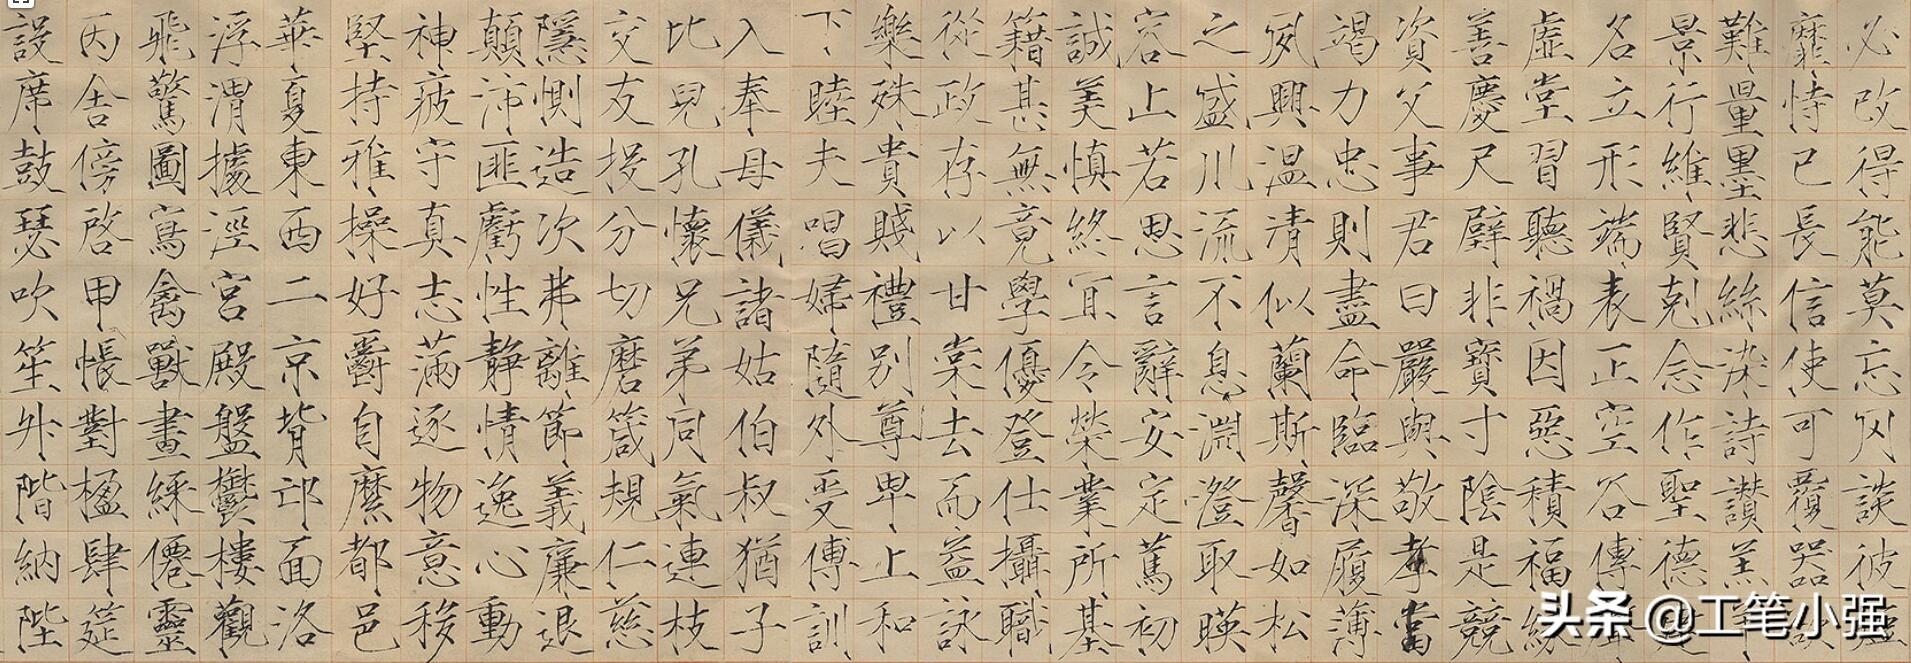 必改得能莫忘罔談彼
靡恃已長信使可覆器
難量墨悲絲染詩讚羔
景行維賢剋念作聖德
名立形端表正空谷傳
虛堂習聽禍因惡積福緣
善慶尺璧非寶寸陰是競
資父事君曰嚴與敬孝當
竭力忠則盡命臨深履薄
夙興溫清似蘭斯馨如松
之盛川流不息淵澄取暎
容止若思言辭安定篤初
誠美慎終宜令榮業所基
籍甚無竟學優登仕攝職
從政存以甘棠去而益詠
樂殊貴賤禮別尊卑上和
下睦夫唱婦隨外受傅訓
入奉母儀諸姑伯叔猶子
比兒孔懷兄弟同氣連枝
交友投分切磨箴規仁慈
隱惻造次弗離節義廉退
顛沛匪虧性靜情逸心動
神疲守真志滿逐物意移
堅持雅操好爵自縻都邑
華夏東西二京背邙面洛
浮渭據涇宮殿盤鬱樓觀
飛驚圖寫禽獸畫綵僊靈
丙舍傍啓甲帳對楹肆筵
設席鼓瑟吹笙升階納陛
头条 @工笔小强